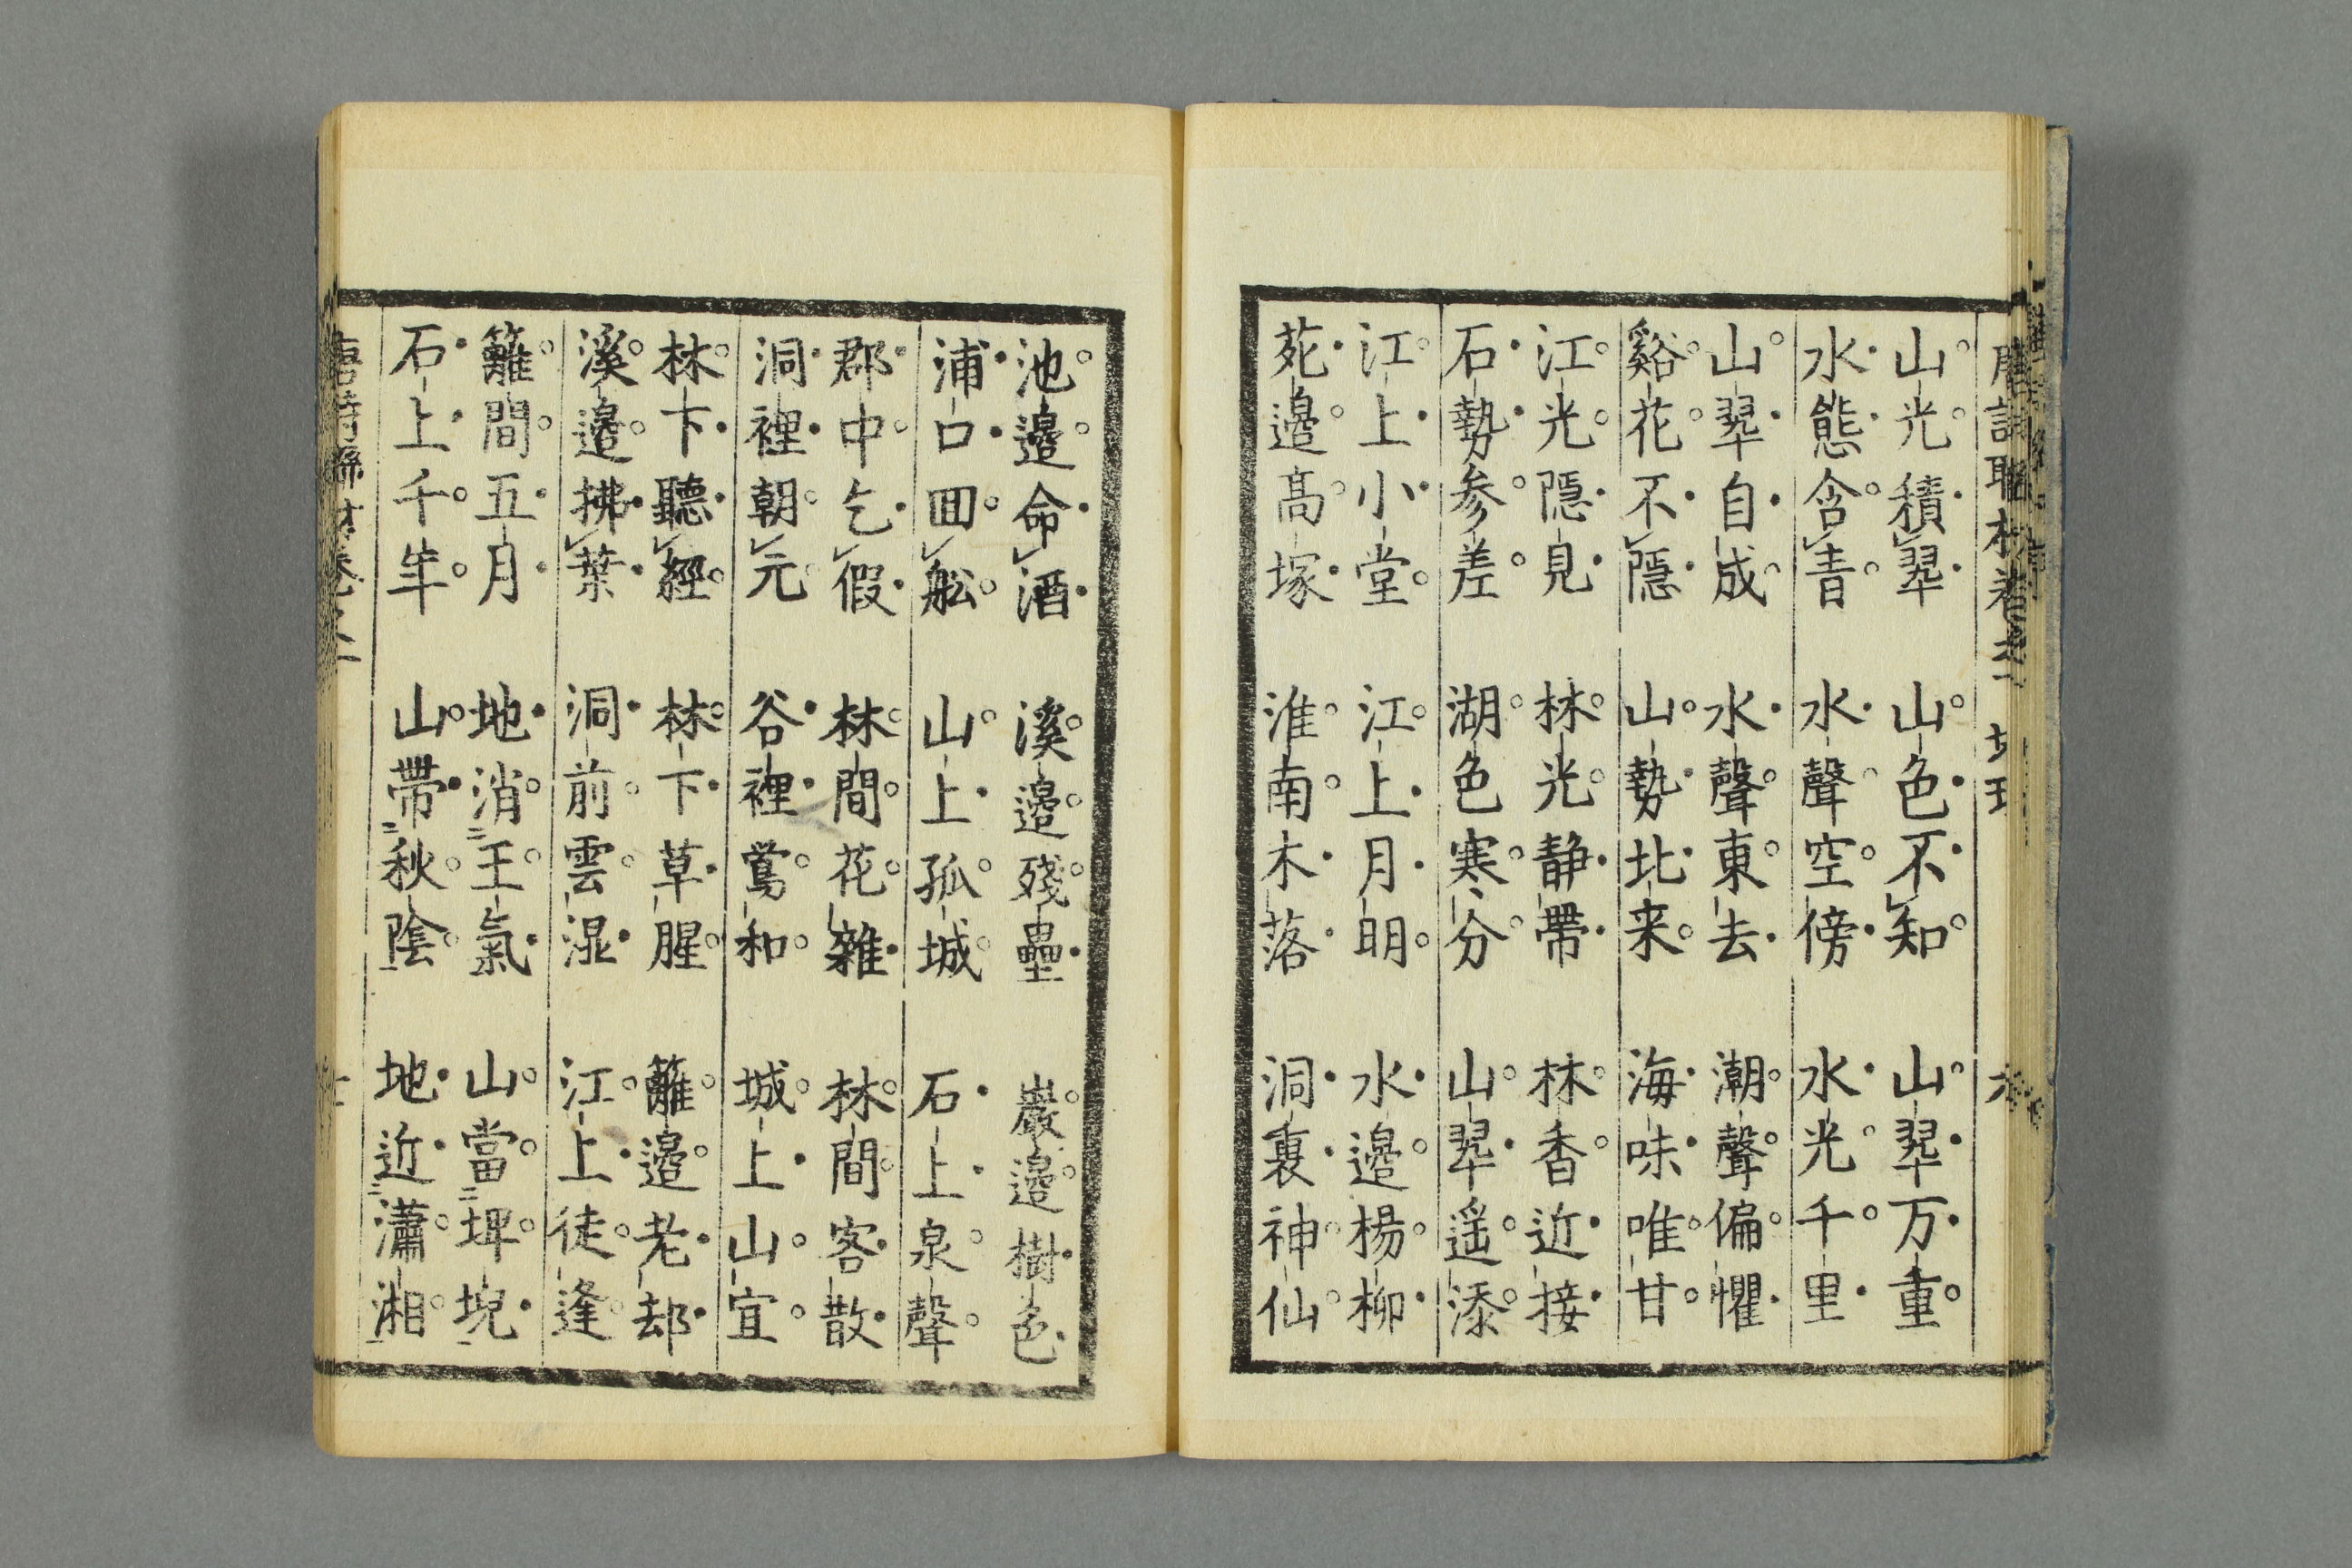 山光積翠 山色不知 山翠万重
水態含青 水聲空傍 水光千里
山翠自成 水聲東去 潮聲偏懼
谿花不隱 山勢北来 海味唯甘
江光隠見 林光静帶 林香近接
石勢参差 湖色寒分 山翠遥添
江上小堂 江上月明 水邉楊柳
苑邉髙塚 淮南木落 洞裏神仙
池邉命酒 溪邉殘壘 巖邉樹色
浦口囬舩 山上孤城 石上泉聲
郡中乞假 林間花雜 林間客散
洞裡朝元 谷裡鶯和 城上山宜
林下聽經 林下草腥 籬邉老却
溪邉拂葉 洞前雲湿 江上徒逢
籬間五月 地消王氣 山當埤堄
石上千年 山帶秋陰 地近瀟湘
唐詩聯材卷之上